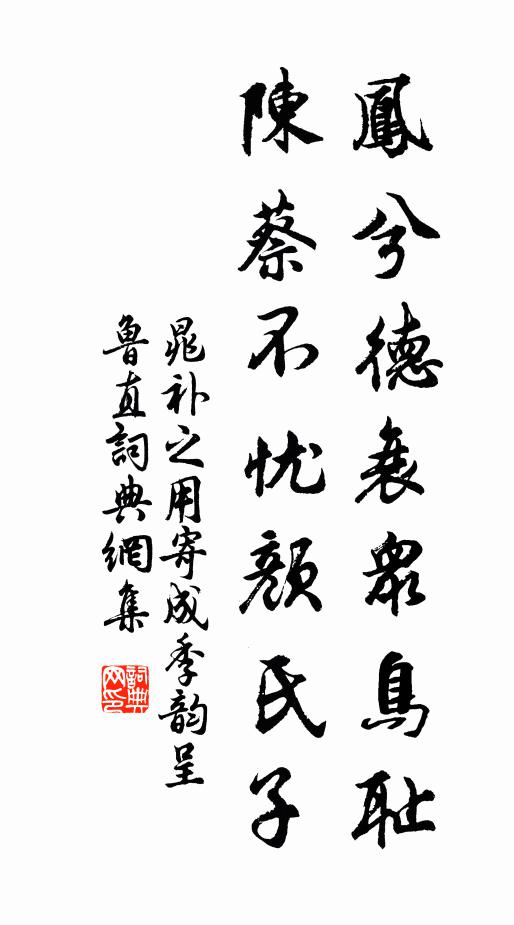 鳳兮德衰眾鳥耻
陳蔡不忧顔氏子
晁补之用寄成季韵呈
魯直詞典網集
詞典网印